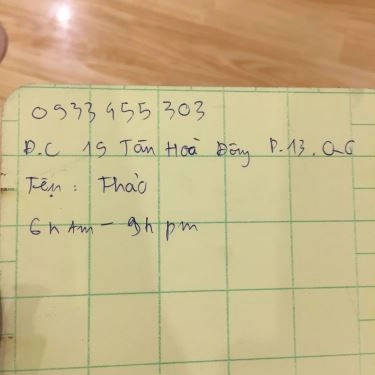 0933 455 303
Đ.C 19 Tân Hoà Đông P.13. Q6
Tên : Thảo
6h Am - 9h pm